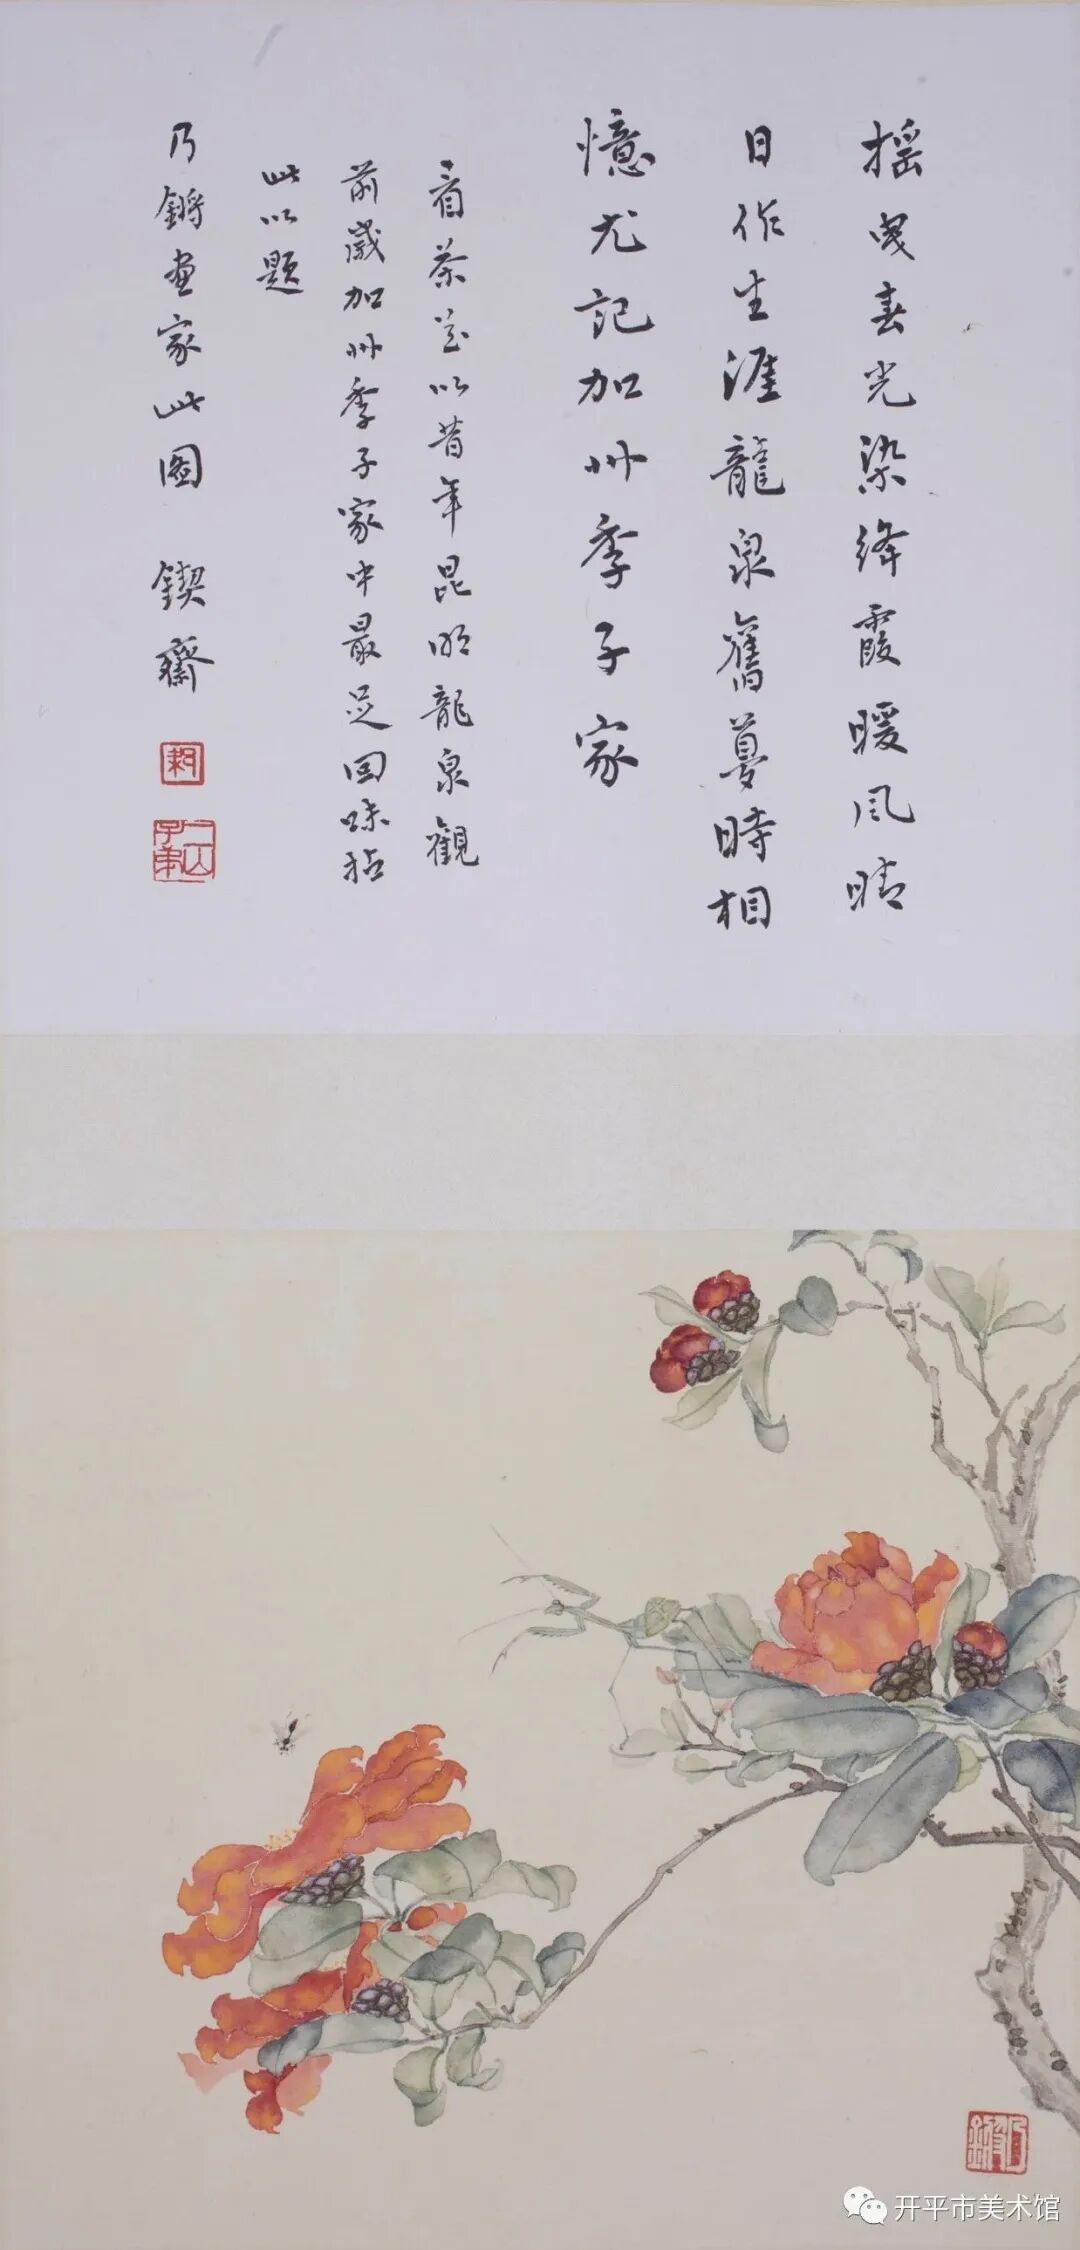 摇曳春光染绛霞暖风晴
日作生涯龍泉舊夢時相
憶尤記加州季子家
看茶花以昔年昆明龍泉觀
前歲加州季子家中最足回味拈
此以題
乃鏘畫家此圖 鍥齋
乃鏘
开平市美术馆